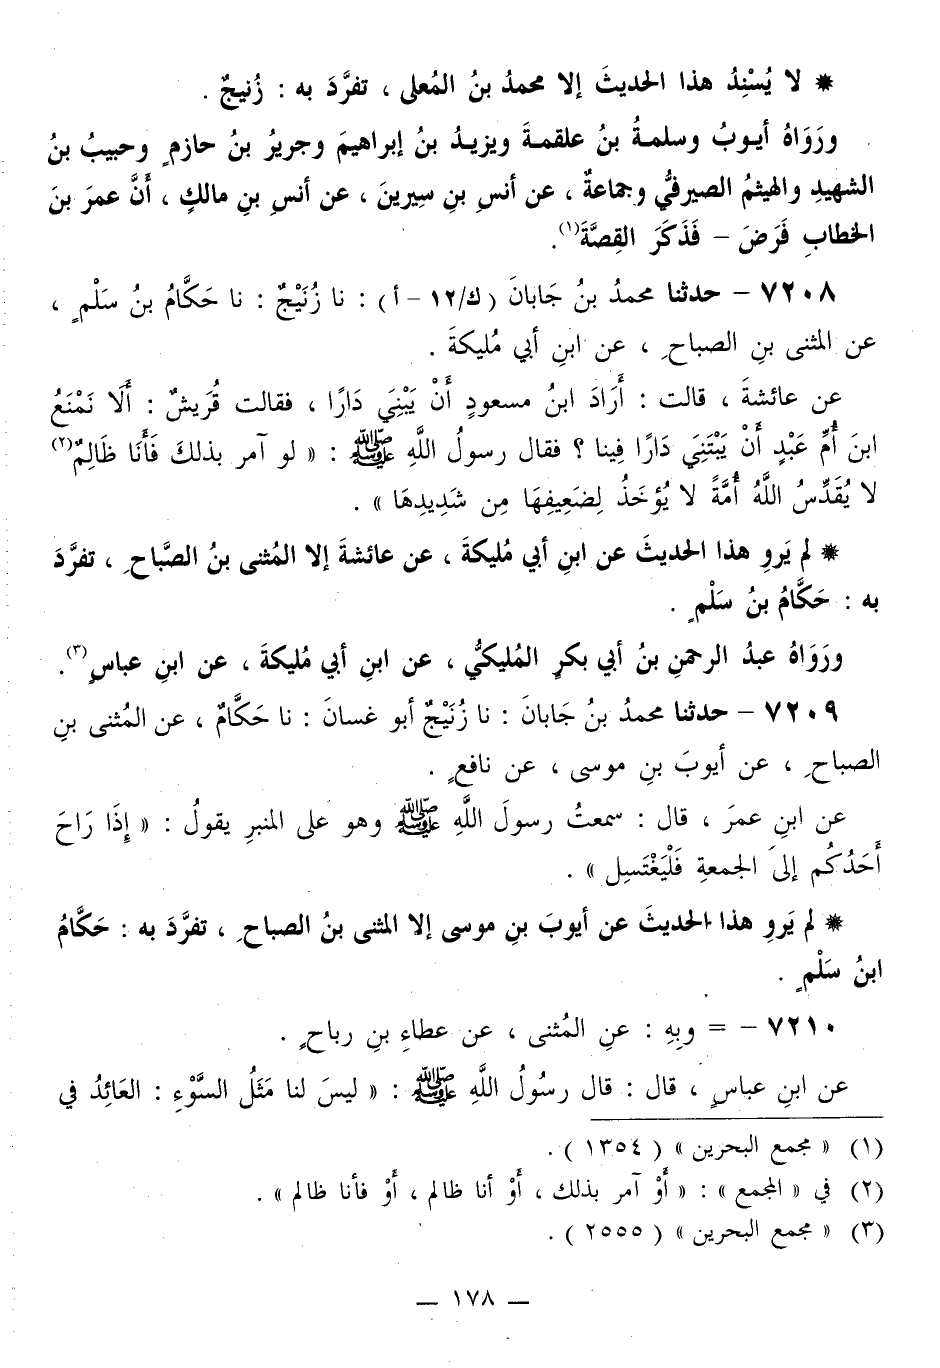 * لا يُسْنِدُ هذا الحديثَ إلا محمدُ بنُ المُعلى ، تفرَّدَ به : زُنيجٌ .
ورَوَاهُ أيـوبُ وسلمـةُ بنُ علقمـةَ ويزيـدُ بنُ إبراهيمَ وجريرُ بنُ حازمٍ وحبيبُ بنُ
الشهيدِ والهيثمُ الصيرفيُّ وجماعةٌ ، عن أنسِ بنِ سِيرينَ ، عن أنسِ بنِ مالكٍ ، أنَّ عمرَ بنَ
الخطابِ فَرَضَ – فَذَكَرَ القِصَّةَ(١).
٧٢٠٨ – حدثنا محمدُ بنُ جَابانَ ( ك/١٢ – أ ) : نا زُنَيْجٌ : نا حَكَّامُ بنُ سَلْمٍ ،
عن المثنى بنِ الصباحِ ، عن ابنِ أبي مُليكةَ .
عن عائشةَ ، قالت : أَرَادَ ابنُ مسعودٍ أَنْ يَبْنِيَ دَارًا ، فقالت قُرَيشٌ : أَلَا نَمْنَعُ
ابنَ أُمِّ عَبْدٍ أَنْ يَبْتَنِيَ دَارًا فِينا ؟ فقال رسولُ اللَّهِ ﷺ : « لو آمر بذلكَ فَأَنَا ظَالِمٌ(٢)
لا يُقَدِّسُ اللَّهُ أُمَّةً لا يُؤخَذُ لِضَعِيفِهَا مِن شَدِيدِهَا » .
* لم يَروِ هذا الحديثَ عن ابنِ أبي مُليكةَ ، عن عائشةَ إلا المُثنى بنُ الصَّباحِ ، تفرَّدَ
به : حَكَّامُ بنُ سَلْمٍ .
ورَوَاهُ عبدُ الرحمنِ بنُ أبي بكرٍ المُليكيُّ ، عن ابنِ أبي مُليكةَ ، عن ابنِ عباسٍ(٣).
٧٢٠٩ – حدثنا محمدُ بنُ جَابانَ : نا زُنَيْجٌ أبو غسانَ : نا حَكَّامٌ ، عن المُثنى بنِ
الصباحِ ، عن أيوبَ بنِ موسى ، عن نافعٍ .
عن ابنِ عمرَ ، قال : سمعتُ رسولَ اللَّهِ ﷺ وهو على المنبرِ يقولُ : « إِذَا رَاحَ
أَحَدُكُم إلىَ الجمعةِ فَلْيَغْتَسِل » .
* لم يَروِ هذا الحديثَ عن أيوبَ بنِ موسى إلا المثنى بنُ الصباحِ ، تفرَّدَ به : حَكَّامُ
ابنُ سَلْمٍ .
٧٢١٠ – = وبِهِ : عنِ المُثنى ، عن عطاءِ بنِ رباحٍ .
عن ابنِ عباسٍ ، قال : قال رسُولُ اللَّهِ ﷺ : « ليسَ لنا مَثَلُ السَّوْءِ : العَائِدُ في
(١) « مجمع البحرين » ( ١٣٥٤ ) .
(٢) في « المجمع » : « أَوْ آمر بذلك ، أَوْ أنا ظالم ، أَوْ فأنا ظالم » .
(٣) « مجمع البحرين » ( ٢٥٥٥ ) .
— ١٧٨ —